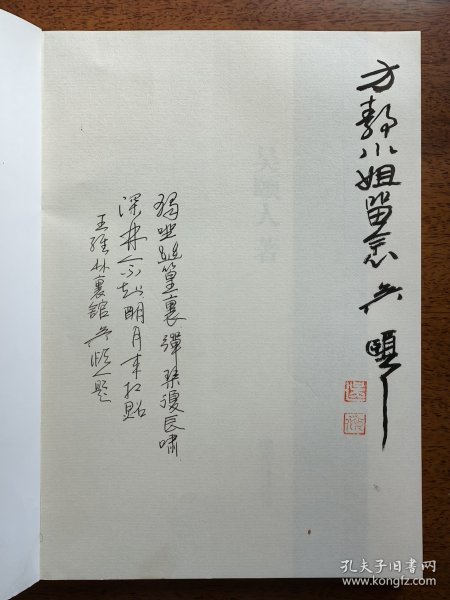 方靜小姐留念 吴頤人
獨坐幽篁裏 彈琴復長嘯
深林人不知 明月来相照
王維竹裏館 吴頤人題
孔夫子旧书网
www.kongfz.com